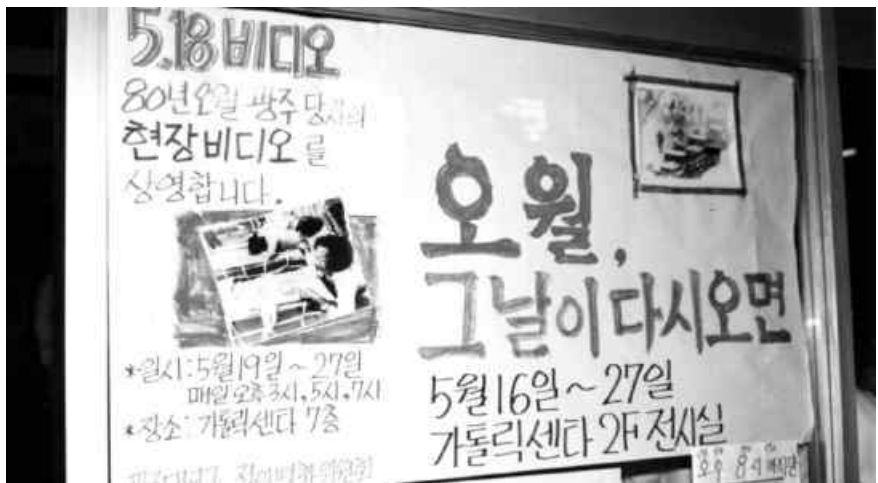 5.18 비디오
80년 오월 광주 당시의
현장비디오를
상영합니다.
*일시: 5월19일~27일
매일 오후 3시, 5시, 7시
*장소: 가톨릭센타 7층
오월,
그날이 다시오면
5월16일~27일
가톨릭센타 2F 전시실
오후 8시